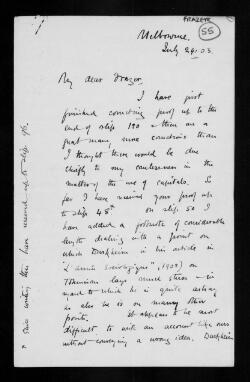 FRAZER
55
Melbourne.
July 29. 03.
My dear Frazer.
I have just
finished correcting proof up to the
end of slip 190 - there are a
great many more corrections than
I thought there would be due
chiefly to my carelessness in the
matter of the use of capitals. So
far I have received your proof up
to slip 48 on slip 52 I
have added a footnote of considerable
length dealing with a point on
which Durkheim in his article in
"L'année Sociologique" (1902) on
Totemism lays much stress - in
regard to which he is quite astray
as also he is on many other
points. It appears to be most
difficult to write an account like ours
without conveying a wrong idea. Durkheim
* Since writing this have received up to slip 96.